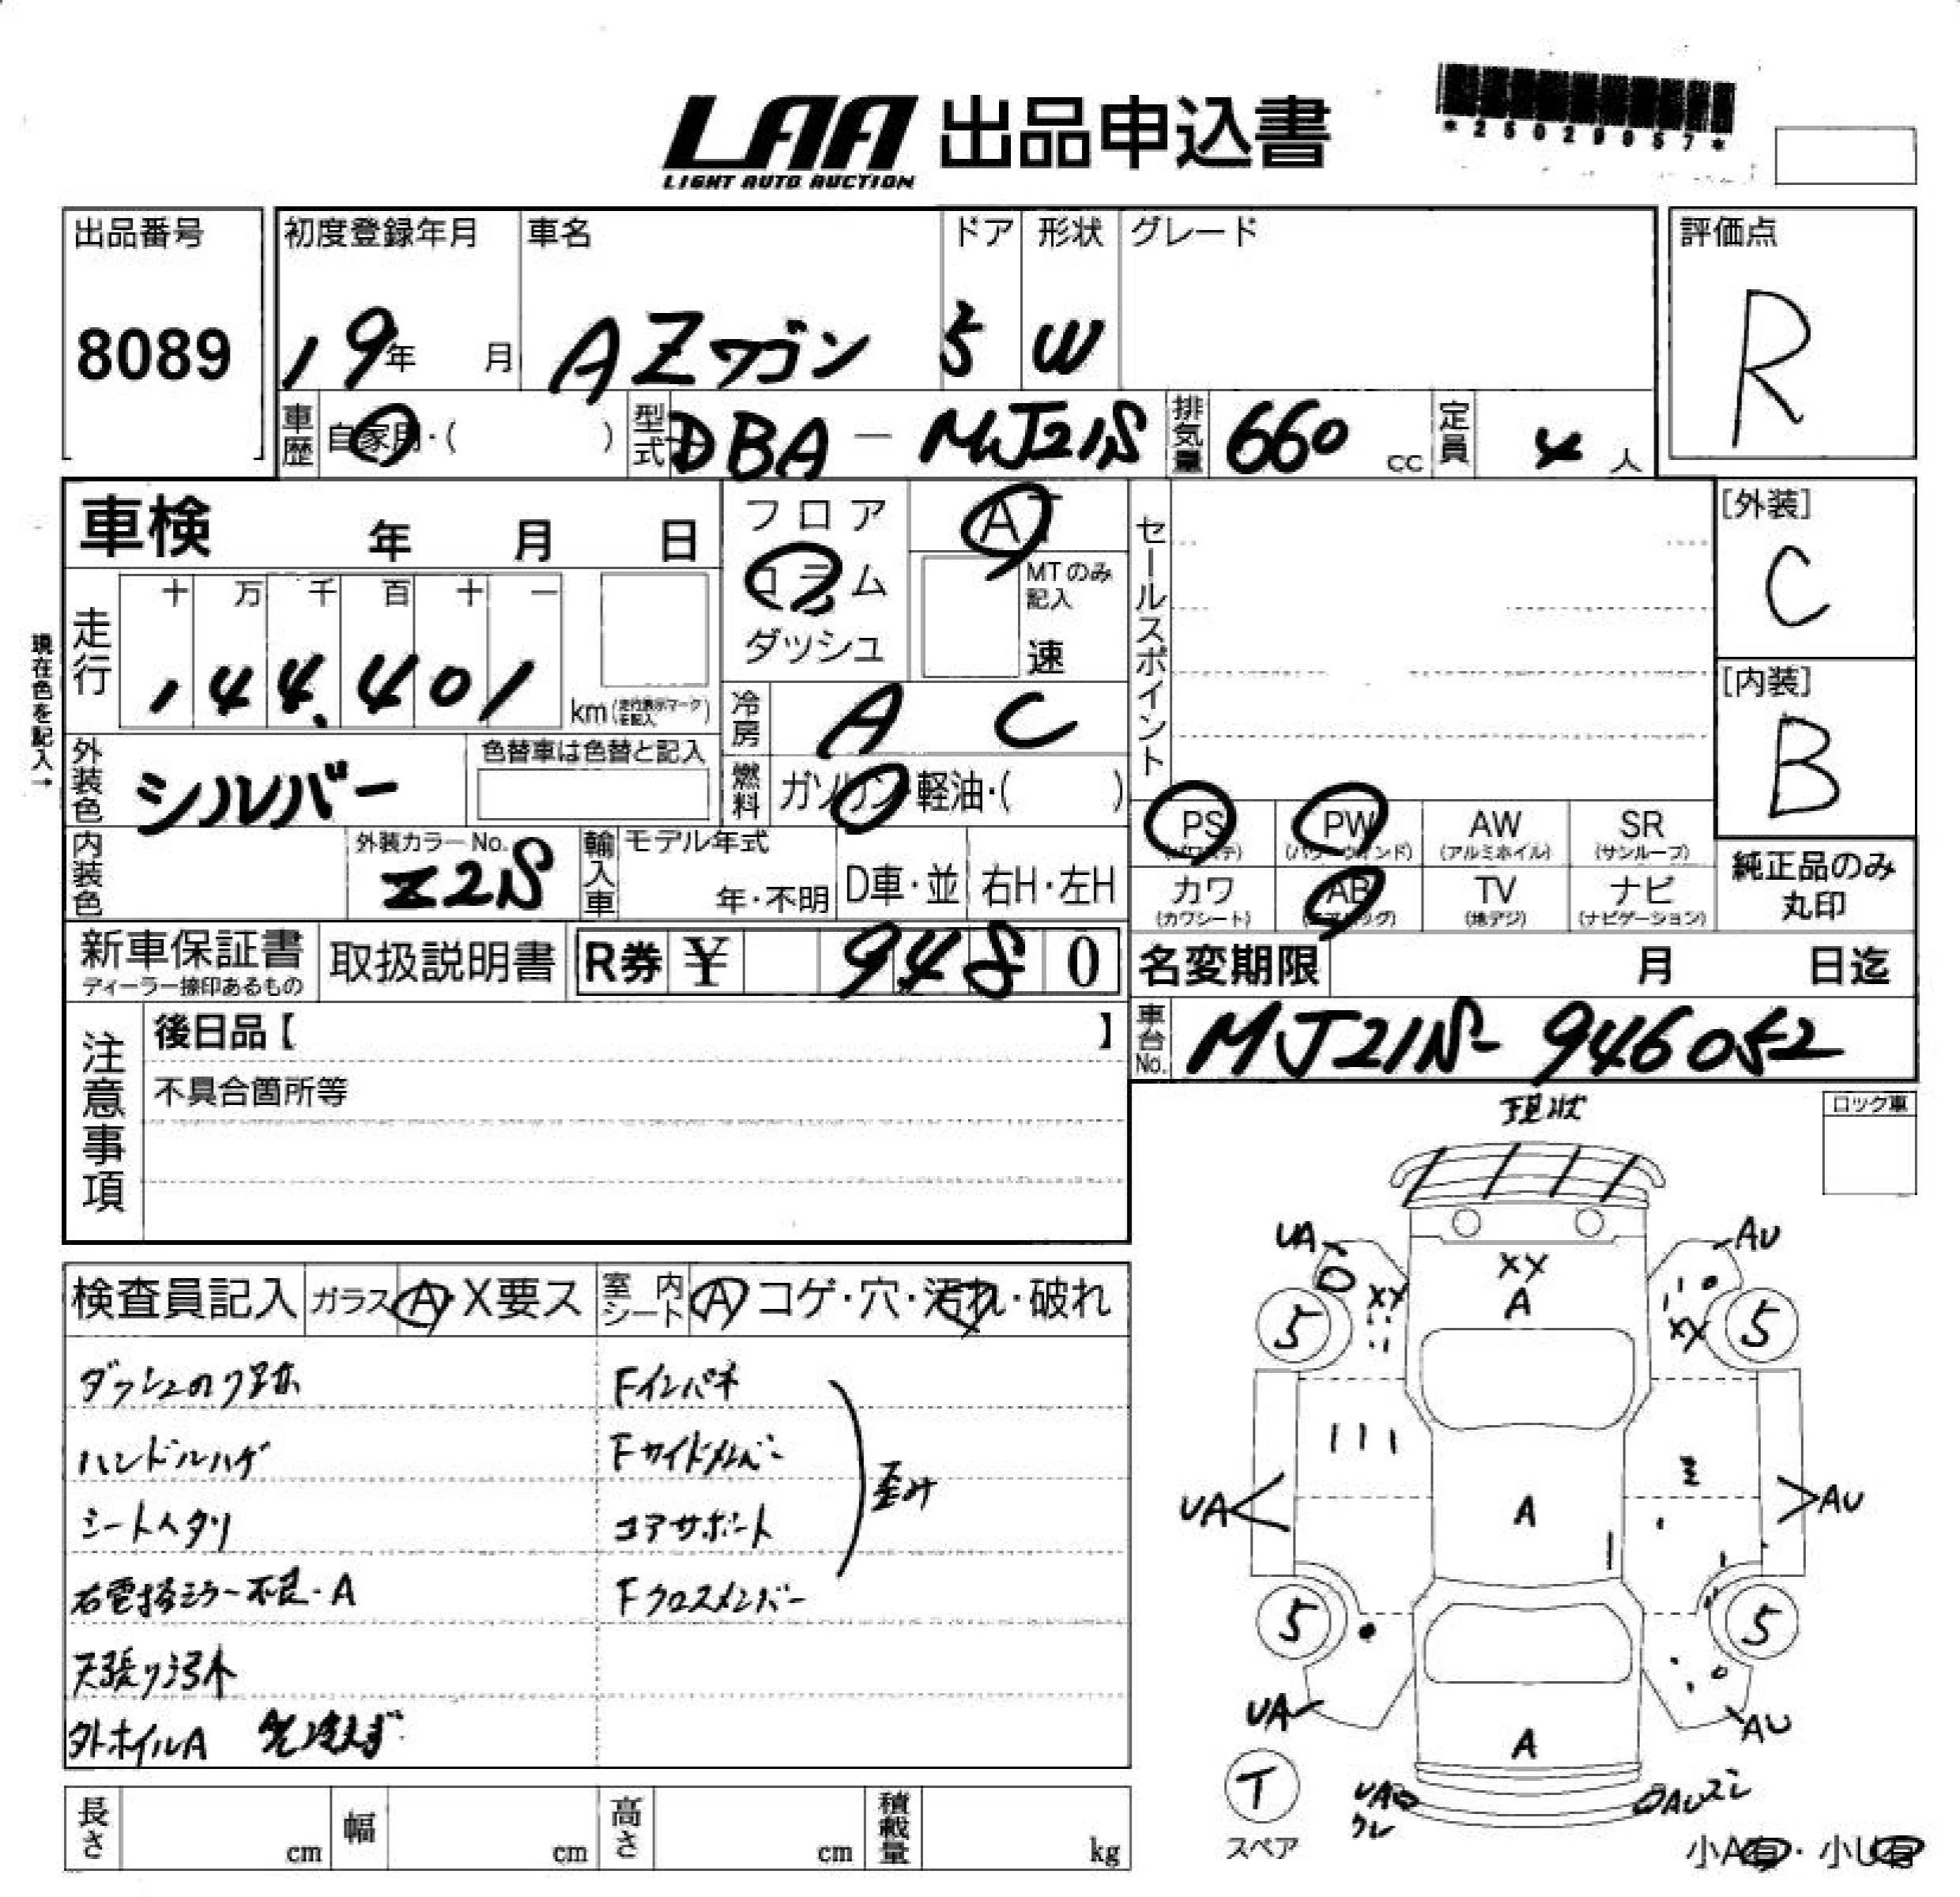 LAA 出品申込書
LIGHT AUTO AUCTION
*25029957*
出品番号
8089
初度登録年月
19年 月
車名
AZワゴン
ドア
5
形状
W
グレード
評価点
R
車歴
自家用・( )
型式
DBA-MJ21S
排気量
660 cc
定員
4 人
車検 年 月 日
フロア
コラム
ダッシュ
AT
MTのみ
記入
速
セールスポイント
[外装]
C
[内装]
B
現在色を記入→
走行
十 万 千 百 十 一
144,401
km (走行表示マークを記入)
冷房
A C
外装色
シルバー
色替車は色替と記入
燃料
ガソリン・軽油・( )
PS
(パワステ)
PW
(パワーウィンド)
AW
(アルミホイル)
SR
(サンルーフ)
カワ
(カワシート)
AB
(エアバッグ)
TV
(地デジ)
ナビ
(ナビゲーション)
純正品のみ
丸印
内装色
外装カラーNo.
Z2S
輸入車
モデル年式
年・不明
D車・並
右H・左H
新車保証書
ディーラー捺印あるもの
取扱説明書
R券 ¥ 9480
名変期限 月 日迄
車台No.
MJ21S-946052
注意事項
後日品【 】
不具合箇所等
現状
ロック車
検査員記入
ガラス A・X要ス
室内シート A コゲ・穴・汚れ・破れ
ダッシュのり跡
ハンドルハゲ
シートヘタリ
右電格ミラー不良・A
天張り汚れ
外ホイルA
Fインパネ
Fサイドメンバー
コアサポート
Fクロスメンバー
歪み
UA
AU
XX
A
XX
XX
5
5
UA
A
AU
5
5
UA
AU
A
T
スペア
UA
AU
ズレ
小A有・小U有
長さ cm
幅 cm
高さ cm
積載量 kg